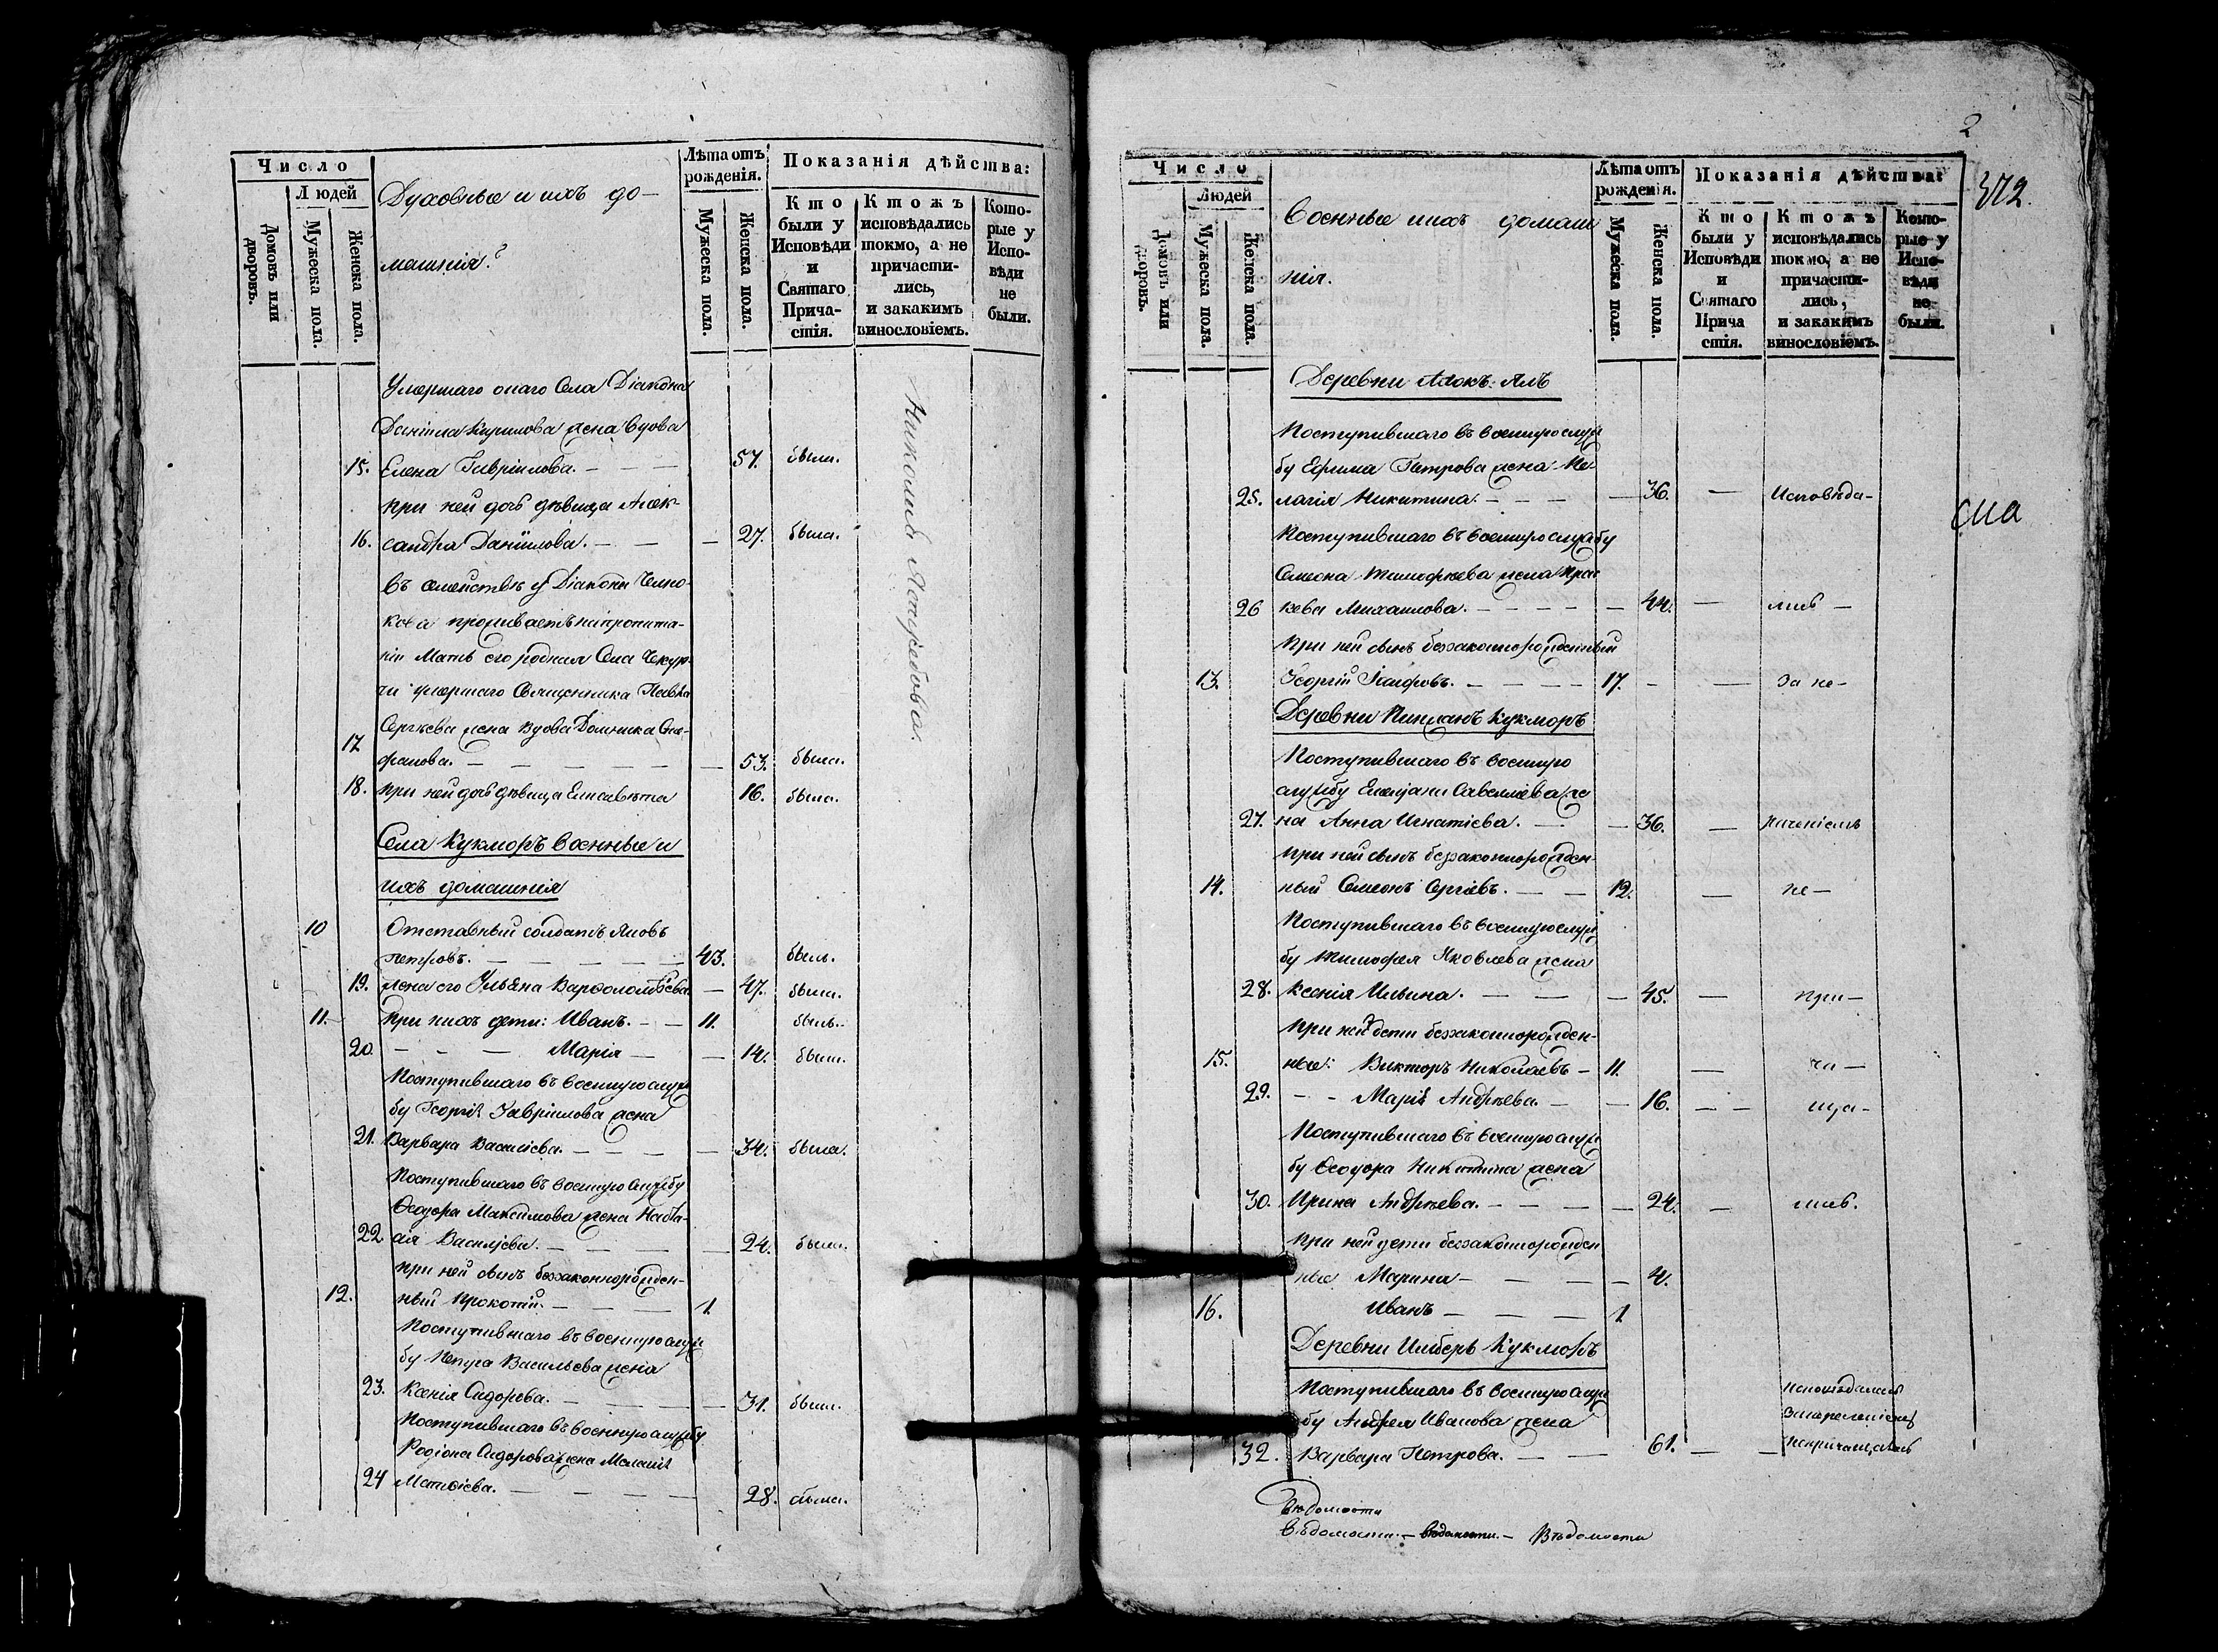 Число
Людей
Домовъ или дворовъ.
Мужеска пола.
Женска пола.
Духовные и ихъ до-
машнія.
Лѣта отъ рожденія.
Мужеска пола.
Женска пола.
Показанія дѣйства:
Кто были у Исповѣди и Святаго Прича-стія.
Ктожъ исповѣдались токмо, а не причасти-лись, и закакимъ винословіемъ.
Кото-рые у Испо-вѣди не были.
Умершаго онаго Села Діакона
Даніила Кирилова жена вдова
15. Елена Гавріилова. — — — 57. была.
при ней дочь дѣвица Алек-
16. сандра Даніилова. — — — 27. была.
въ семействѣ у Діакона
проживаетъ на пропита-
ніи Мать его родная Села Чекур-
чи умершаго Священника Павла
Сергѣева жена вдова Домника Сте-
17 фанова. — — — — — — 53. была.
18. при ней дочь дѣвица Елисавета 16. была.
Села Кукморъ военные и
ихъ домашнія
10 Отставный солдатъ Яковъ
петровъ. — — — — — 43. былъ.
19. жена его Ульяна Варѳоломѣева. — 47. была.
11. — при нихъ дети: Иванъ. — — 11. былъ.
20. — — — Марія — — 14. была.
Поступившаго въ военную служ
бу Георгія Гавріилова жена
21. Варвара Василіева. — — — — 34. была.
Поступившаго въ военную службу
Ѳеодора Максимова жена Ната-
22. лія Василіева. — — — — 24. была.
при ней сынъ беззаконнорожден-
12. ный Прокопій. — — — 1.
Поступившаго въ военную служ
бу Петра Васильева жена
23. Ксенія Сидорова. — — — — 31. была.
Поступившаго въ военную службу
Родіона Сидорова жена Меланія
24 Матвіева. — — — — — 28. была.
Николай
2
372.
Число
Людей
Домовъ или дворовъ.
Мужеска пола.
Женска пола.
Военные и ихъ домаш
нія.
Лѣта отъ рожденія.
Мужеска пола.
Женска пола.
Показанія дѣйства:
Кто были у Исповѣди и Святаго Прича стія.
Ктожъ исповѣдались токмо, а не причасти-лись, и закакимъ винословіемъ.
Кото-рые у Испо-вѣди не были.
Деревни
Поступившаго въ военную служ
бу Ефима Петрова жена Пе
25. лагія Никитина. — — — — 36. — Исповѣда-
Поступившаго въ военную службу
Симеона Тимофѣева жена Прас
26 кева Михаилова. — — — — — 44. — лись —
при ней сынъ беззаконнорожденный
13. Георгій — — — — 17. — — За не —
Деревни Починокъ Кукморъ
Поступившаго въ военную
службу Савельева же
27. на Анна Игнатіева. — — 36. —
при ней сынъ беззаконнорожден-
14. ный Симеонъ Сергіевъ. — — 12. — не —
Поступившаго въ военную служ
бу Тимофея Яковлева жена
28. Ксенія Ильина. — — — — 45. — при —
при ней дети беззаконнорожден-
15. ные: Викторъ Николаевъ — 11. — ча —
29. — — Марія Андрѣева. — — 16. — — ща —
Поступившаго въ военную служ
бу Ѳеодора Никитина жена
30. Ирина Андрѣева. — — — — 24. — лись.
при ней дети беззаконнорожден
ные Марина — — — — 4.
16. Иванъ — — — 1
Деревни Кукморъ
Поступившаго въ военную служ
бу Андрея Иванова жена
32. Варвара Петрова. — — 61. — —
Вѣдомости
вѣдомости. — вѣдомости. — Вѣдомости